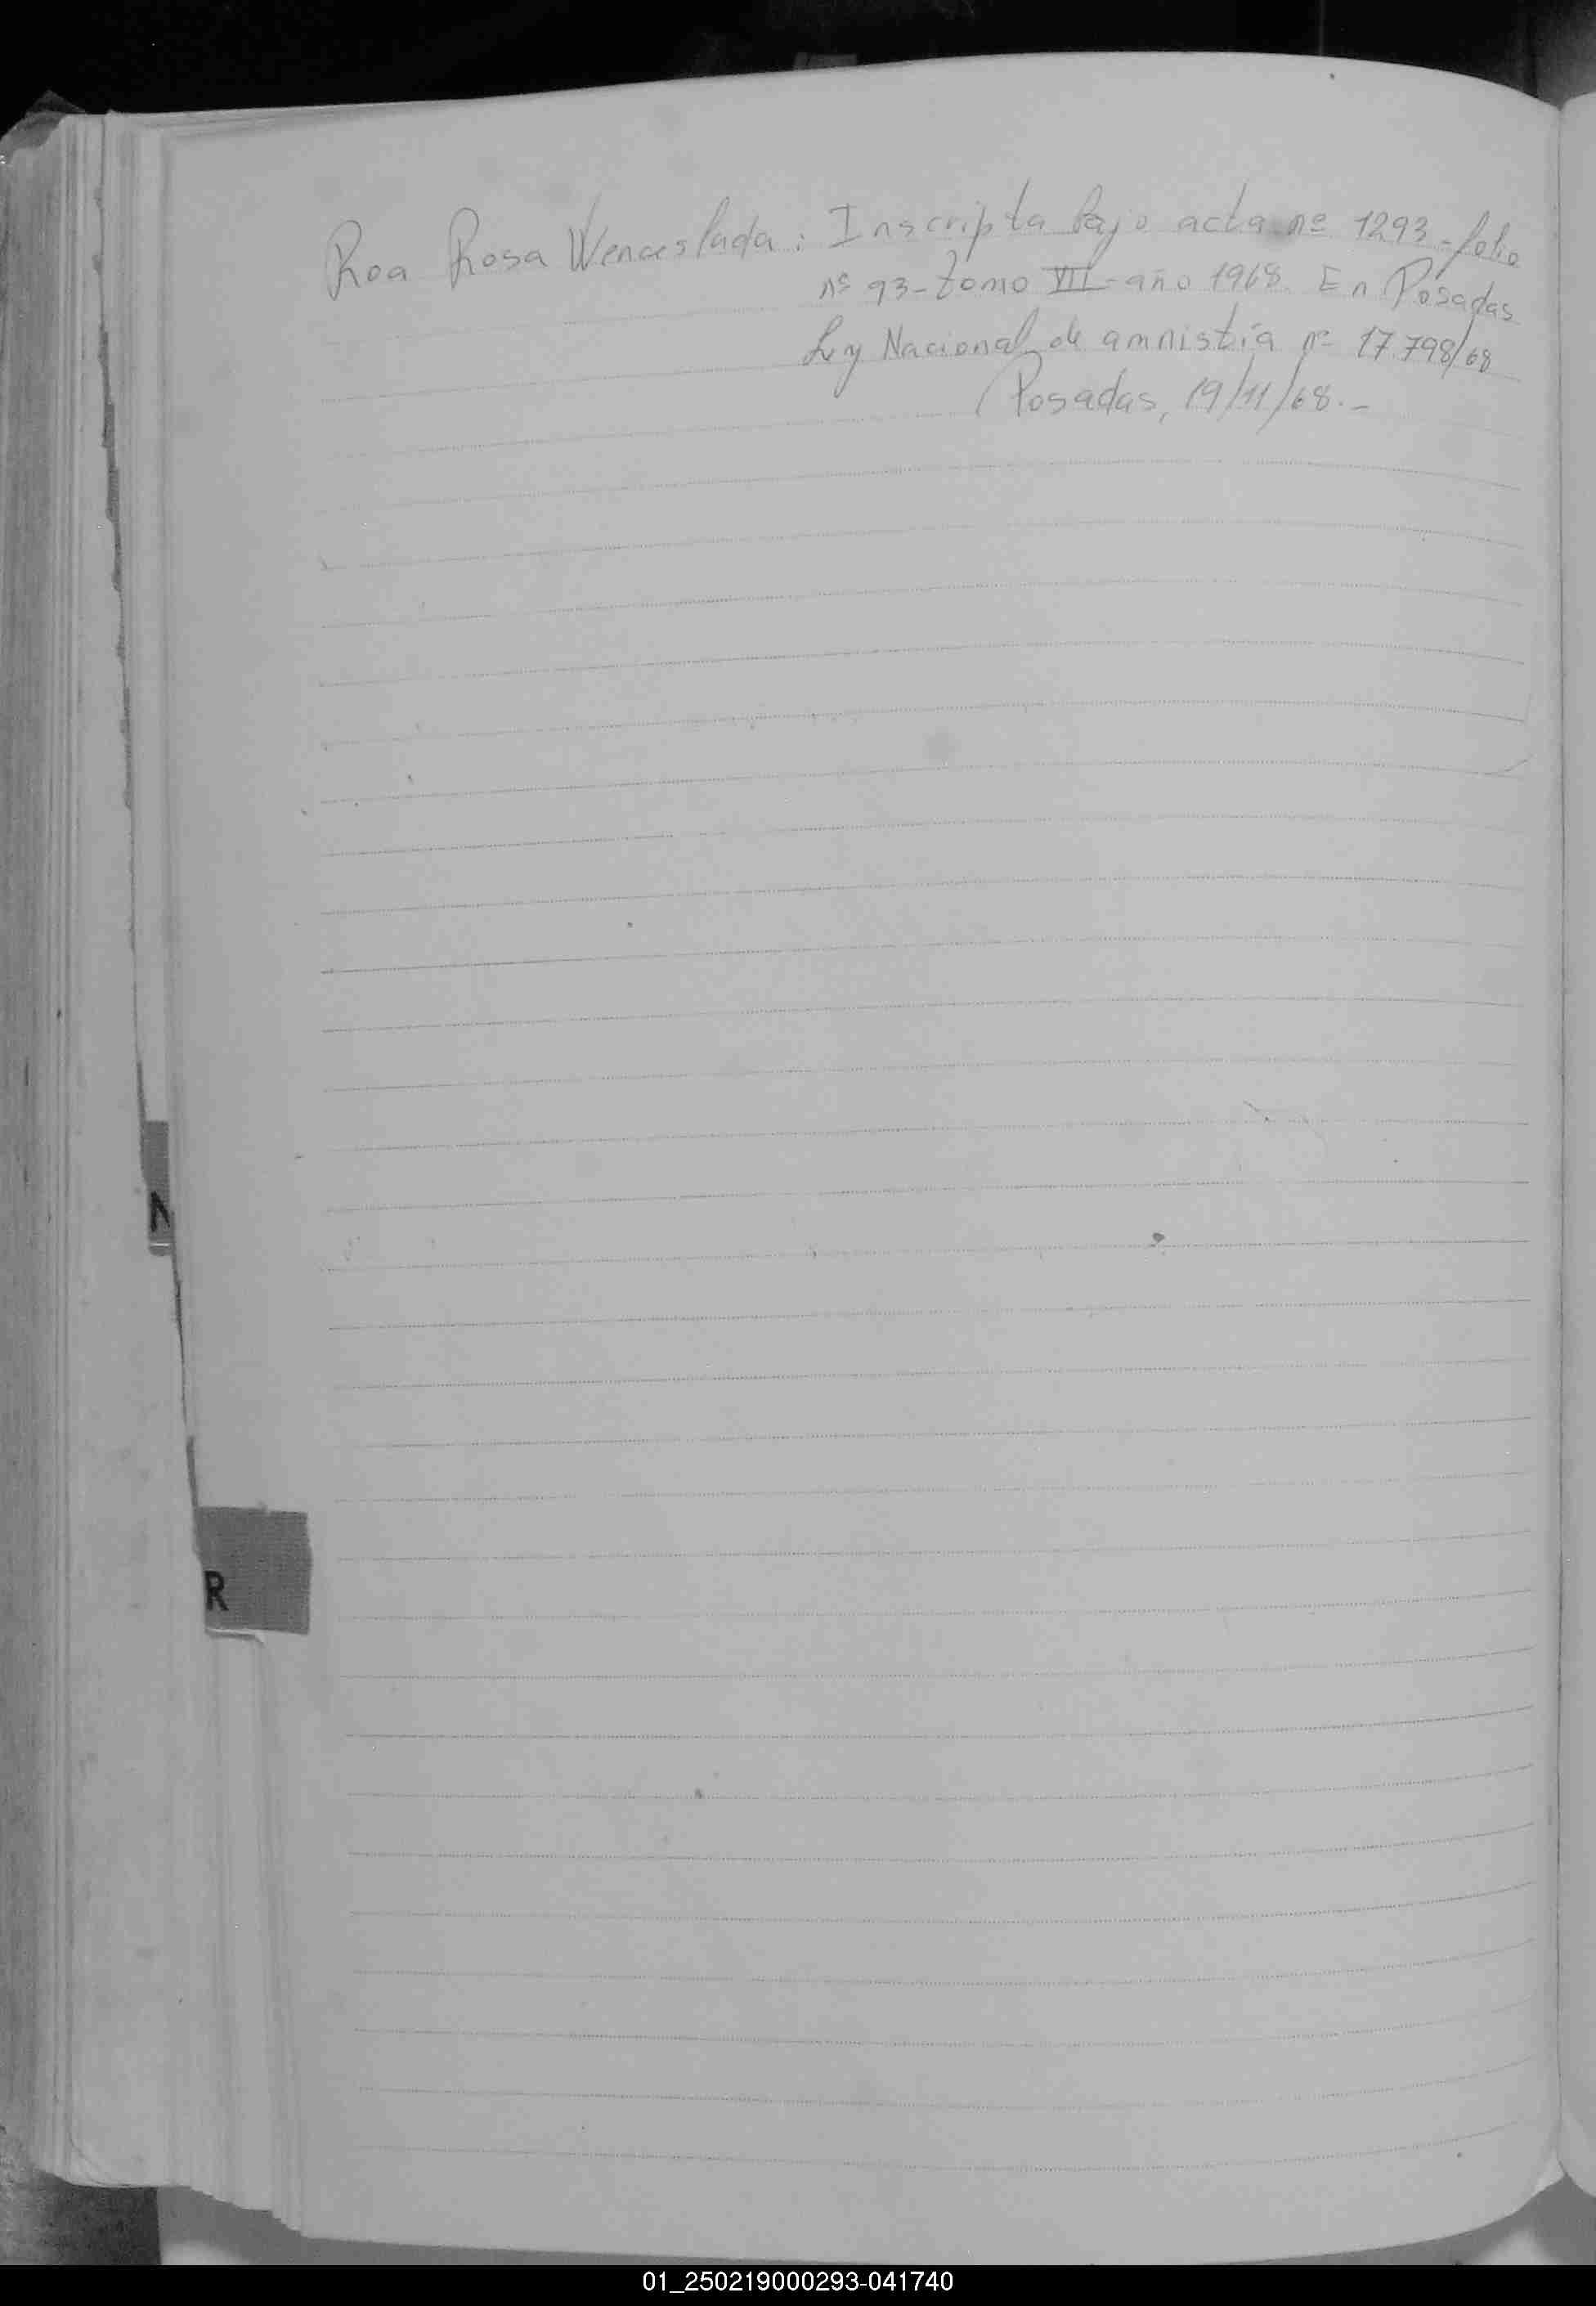 Roa Rosa Wenceslada: Inscripta bajo acta nº 1293 - folio
nº 93 - tomo VII - año 1968. En Posadas
Ley Nacional de amnistía nº 17.798/68
Posadas, 19/11/68.-
N
R
01_250219000293-041740